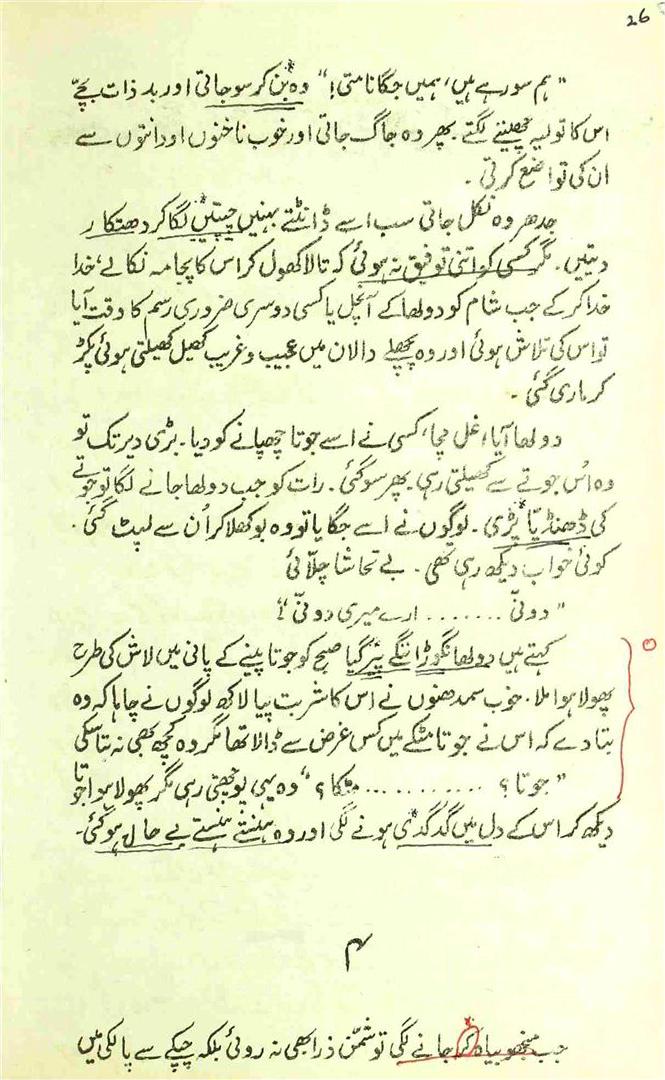 26
"ہم سو رہے ہیں، ہمیں جگانا متی!" وہ بن کر سو جاتی اور بد ذات بچے
اس کا تولیہ چھیننے لگتے۔ پھر وہ جاگ جاتی اور خوب ناخنوں اور دانتوں سے
ان کی تواضع کرتی۔
جدھر وہ نکل جاتی سب اسے ڈانٹتے بہنیں چپتیں لگا کر دھتکار
دیتیں۔ مگر کسی کو اتنی توفیق نہ ہوئی کہ تالا کھول کر اس کا پجامہ نکالے، خدا
خدا کر کے جب شام کو دولھا کے آنچل یا کسی دوسری ضروری رسم کا وقت آیا
تو اس کی تلاش ہوئی اور وہ پچھلے دالان میں عجیب و غریب کھیل کھیلتی ہوئی پکڑ
کر ماری گئی۔
دولھا آیا، غل مچا، کسی نے اسے جوتا چھپانے کو دیا۔ بڑی دیر تک تو
وہ اُس جوتے سے کھیلتی رہی پھر سو گئی۔ رات کو جب دولھا جانے لگا تو جوتے
کی ڈھنڈیّا پڑی۔ لوگوں نے اسے جگایا تو وہ بوکھلا کر اُن سے لپٹ گئی۔
کوئی خواب دیکھ رہی تھی۔ بے تحاشا چلّائی
"دونیّ ....... ارے میری دونیّ!"
کہتے ہیں دولھا نگوڑا ننگے پیر گیا صبح کو جوتا پینے کے پانی میں لاش کی طرح
پھولا ہوا ملا۔ خوب سمدھنوں نے اس کا شربت پیا لاکھ لوگوں نے چاہا کہ وہ
بتا دے کہ اس نے جوتا مٹکے میں کس غرض سے ڈالا تھا مگر وہ کچھ بھی نہ بتا سکی
"جوتا؟ ........... مٹکا؟" وہ یہی پوچھتی رہی مگر پھولا ہوا جوتا
دیکھ کر اس کے دل میں گدگدی ہونے لگی اور وہ ہنستے ہنستے بے حال ہو گئی۔
۴
جب منجھو بیاہ کر جانے لگی تو شمّن ذرا بھی نہ روئی بلکہ چپکے سے پالکی میں